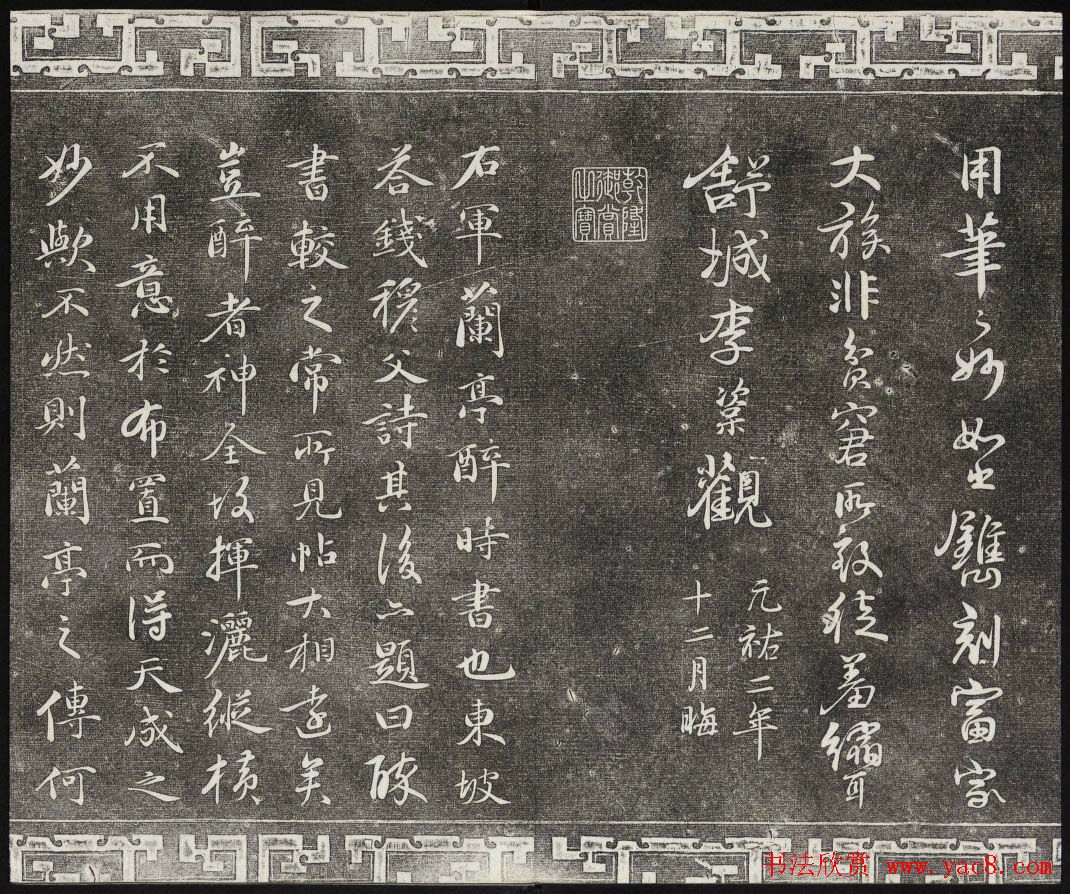 用筆之妙如出鐫刻富家
大族非貧窘所致徒羞縮耳
舒城李楶觀
元祐二年
十二月晦
乾隆
御賞
之寶
右軍蘭亭醉時書也東坡
荅錢穆父詩其後亦題曰醉
書較之常所見帖大相遠矣
豈醉者神全故揮灑縱橫
不用意於布置而得天成之
妙歟不然則蘭亭之傳何
书法欣赏 www.yac8.com